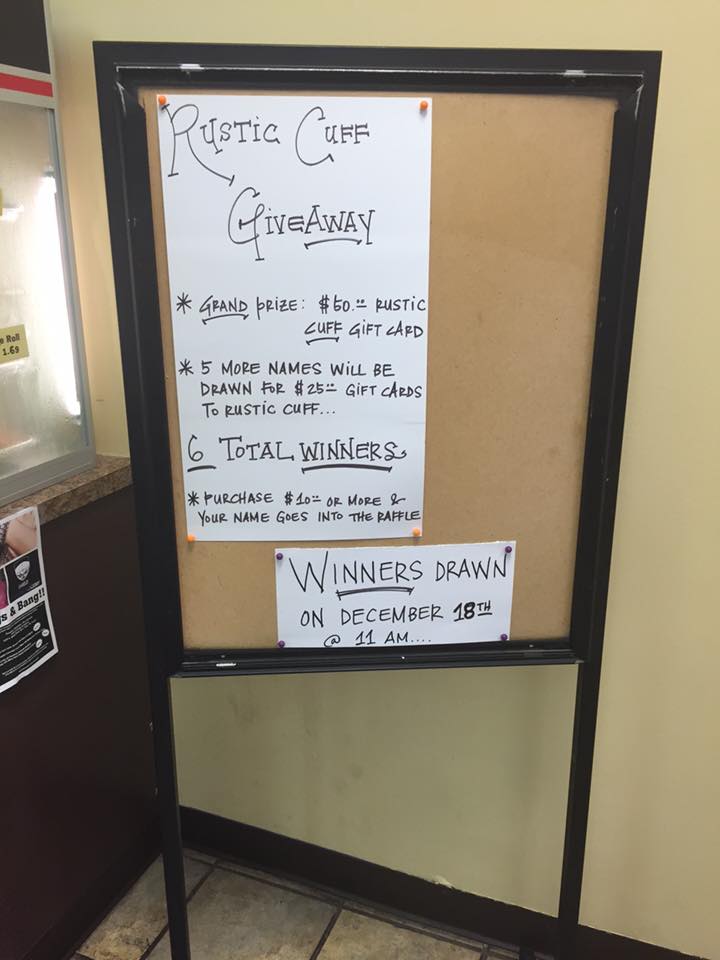 Rustic Cuff
GiveAway
* GRAND PRIZE: $50.00 RUSTIC
CUFF GIFT CARD
* 5 MORE NAMES WILL BE
DRAWN FOR $25.00 GIFT CARDS
TO RUSTIC CUFF...
6 TOTAL WINNERS
* PURCHASE $10.00 OR MORE &
YOUR NAME GOES INTO THE RAFFLE
WINNERS DRAWN
ON DECEMBER 18TH
@ 11 AM....
Roll
1.69
& Bang!!